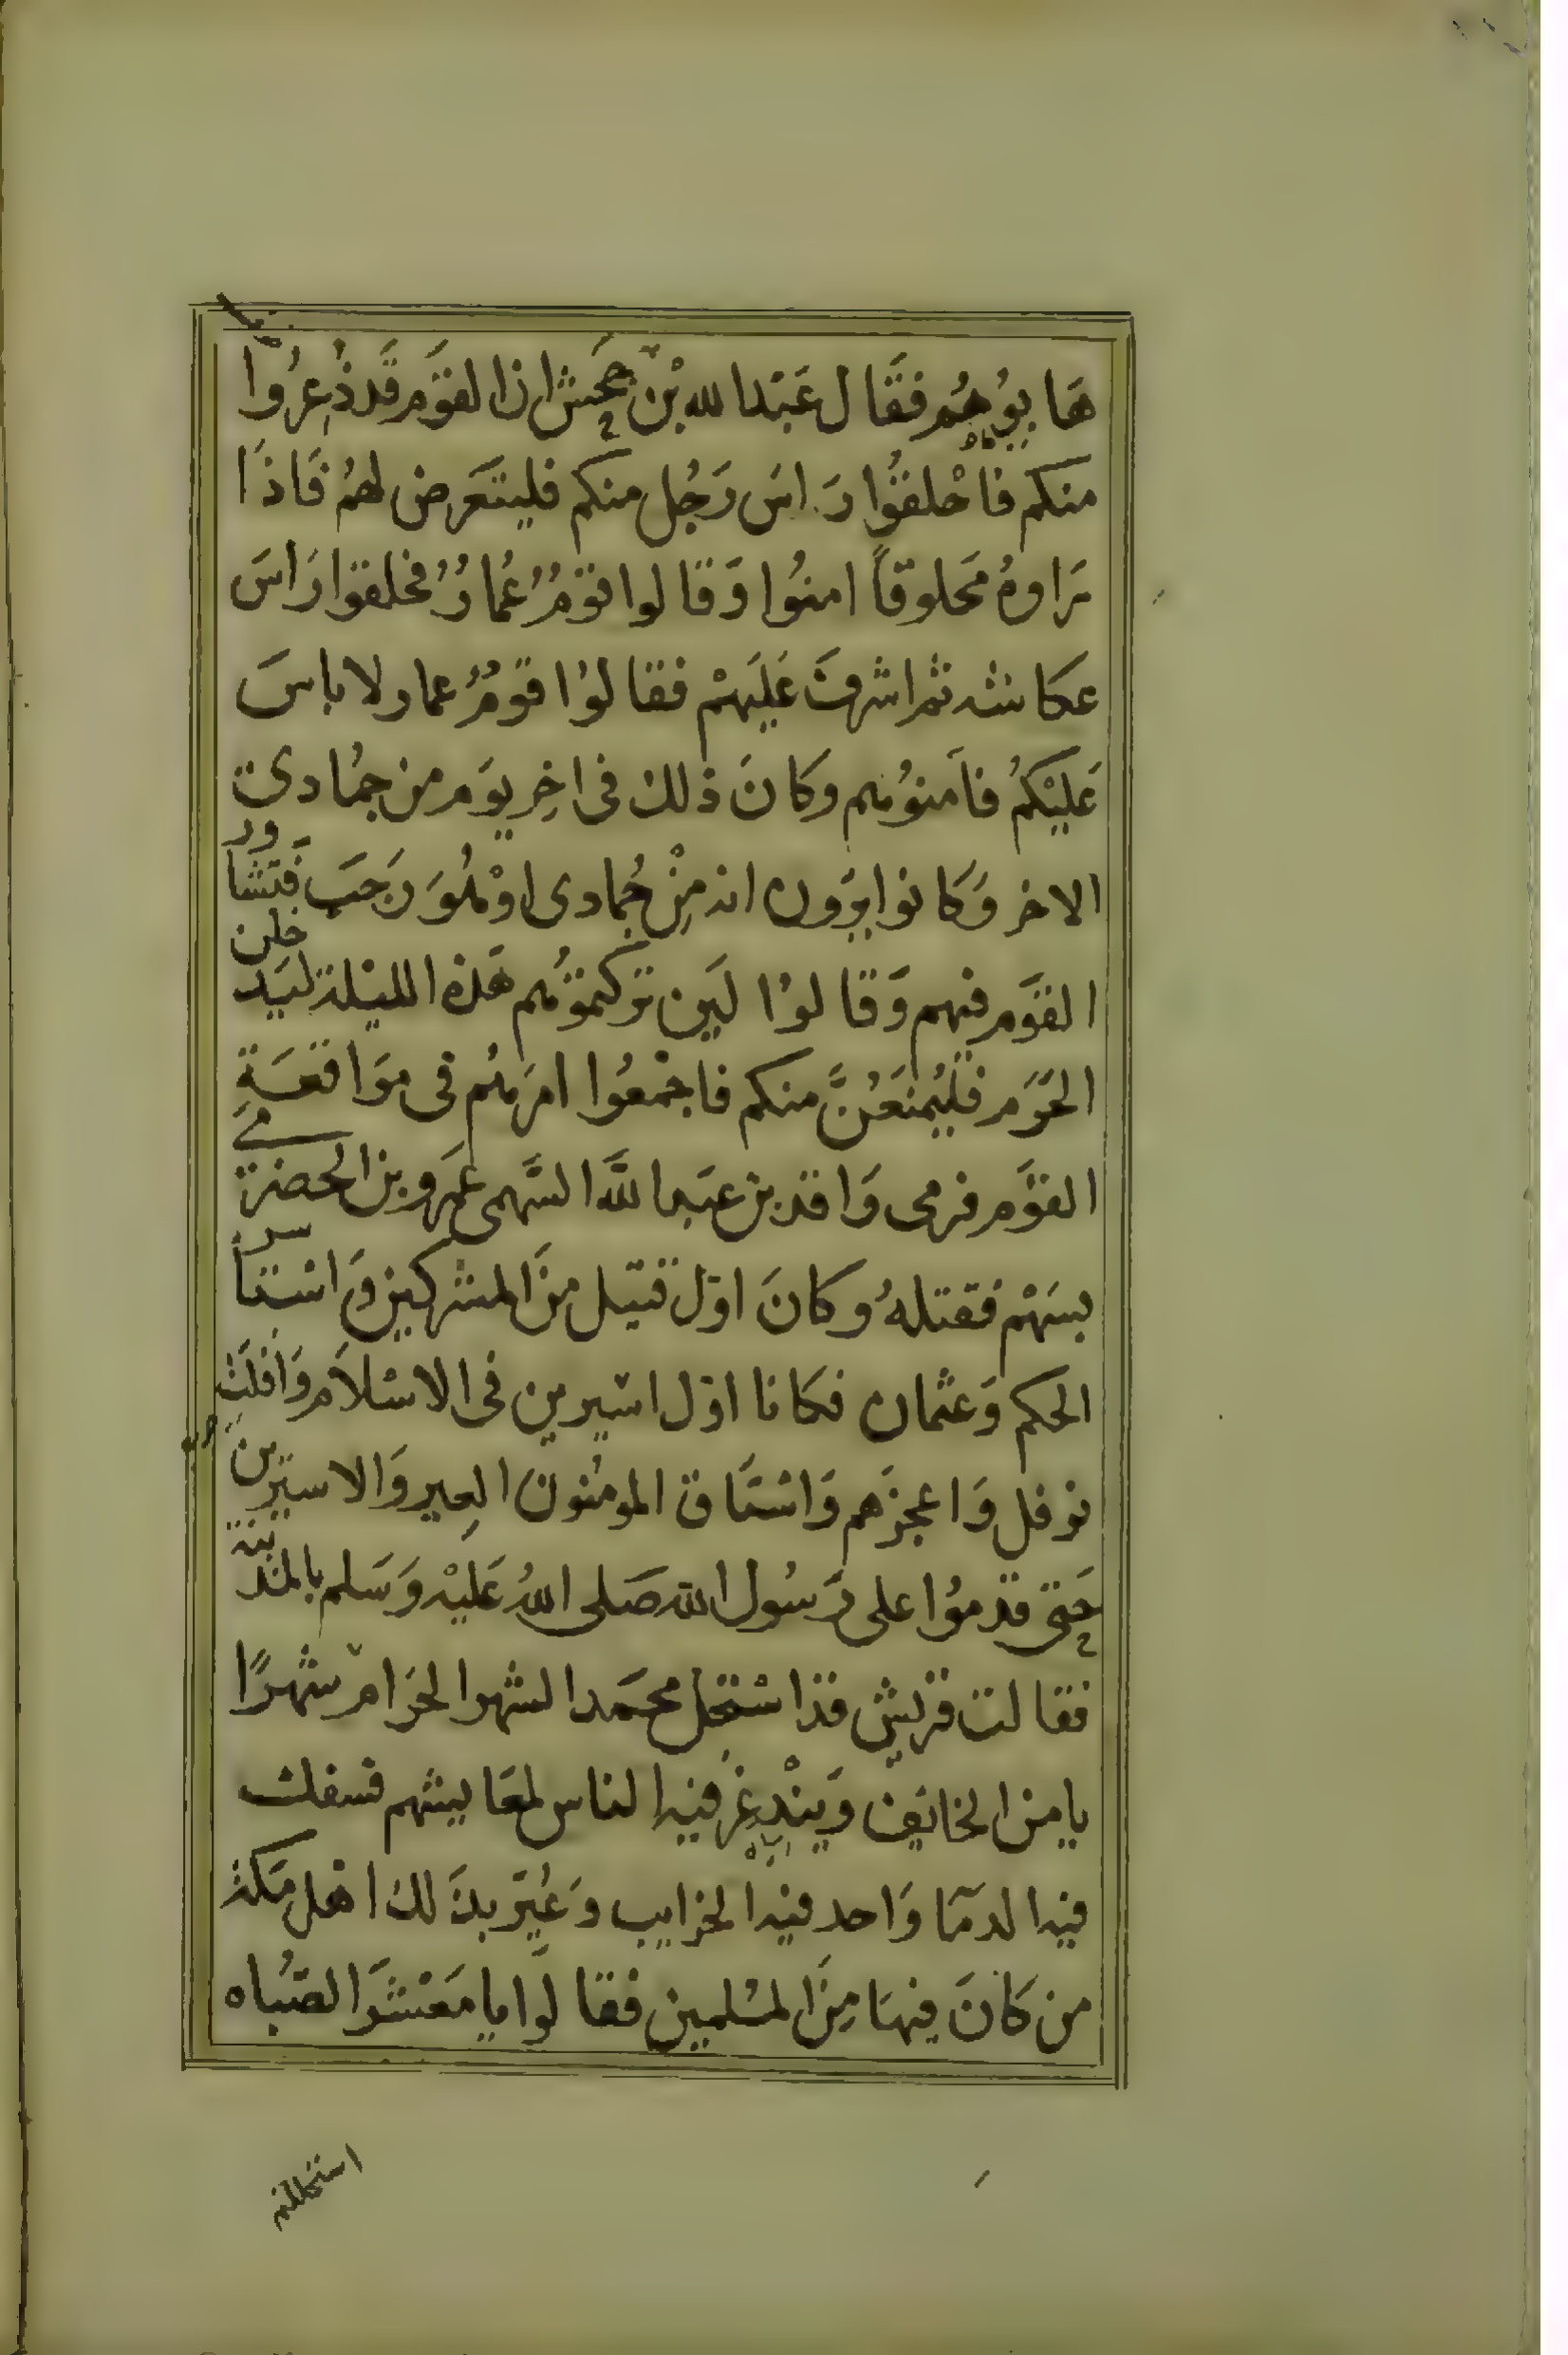 هَابُوهُم فقَال عَبْد الله بْن جَحَش ان القَوَم قَد ذُعرُوا
منكم فاحْلقُوا رَاسَ رَجُل منكم فليتعَرض لهمُ فَاذَا
رَاوهُ مَحلوقاً امنُوا وَقالوا قوَمُ عُمارُ فحلقوا رَاسَ
عكاشه ثم اشرفَ عَليَهْم فقالوُا قومُ عمار لا باسَ
عَليْكمُ فاَمنوُهم وكانَ ذلك فى اخِر يوَم من جمُادى
الاخر وَكانوا يرَون انه مِنْ جُمادى اوْ هُوَ رَجَبَ فَتشاور
القوَم فيهم وَقالوُا لَين تركتموُهم هَذه الليْلة ليَدخلن
الحَرَم فليُمنَعُنَّ منكم فاجْمعُوا امرَهُم فى موَاقعَةِ
القوَم فرمى وَاقد بن عبَد اللَّه السَّهمى عَمرو بن الحضرمَى
بسَهْم فقتلهُ وكانَ اوّل قتيل منَ المشركين وَاستاسر
الحكم وَعثمان فكانا اوّل اسَيرين فى الاسْلاَم وَافلَت
نوفل وَاعجزَهم وَاسْتَاق المومُنونَ العِير وَالاسيَرين
حَتى قدموُا على رَسُول الله صَلى اللهُ عَليْه وَسَلم بالمَدينة
فقالت قرَيش قد اسْتحل محمَد الشهر الحَرَام شهرًا
يامن الخايف وَينْدعِرُ فيه الناس لمعَايشهم فسفك
فيه الدمَآ وَاحد فيه الحزايب وَعُيّر بذَلك اهْل مَكة
من كانَ فيهَا مِنَ المسْلمين فقالوَا يا مَعْشَرَ الصُباه
استحللتم